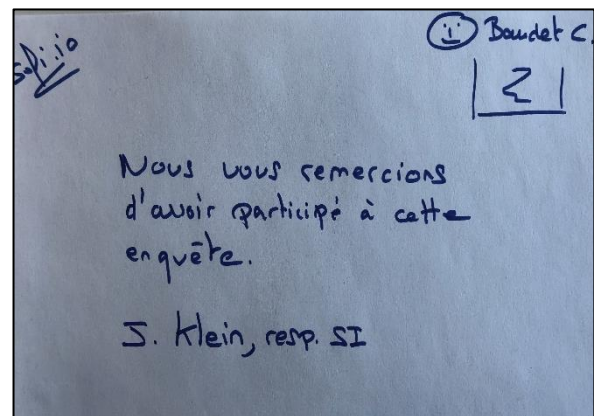 Baudet C.
2
Nous vous remercions
d'avoir participé à cette
enquête.
S. Klein, resp. SI